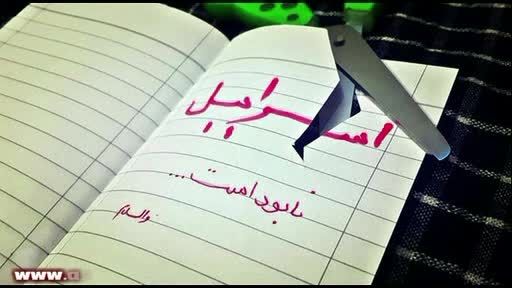 اسرائیل
نابود است...
والسلام
www.a